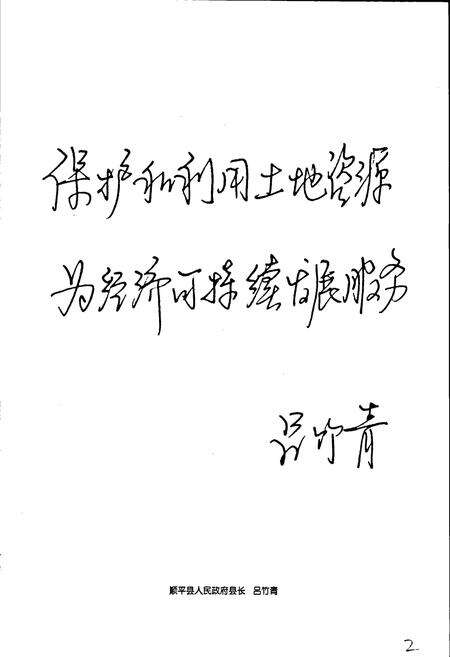 保护和利用土地资源
为经济可持续发展服务
吕竹青
顺平县人民政府县长 吕竹青
2